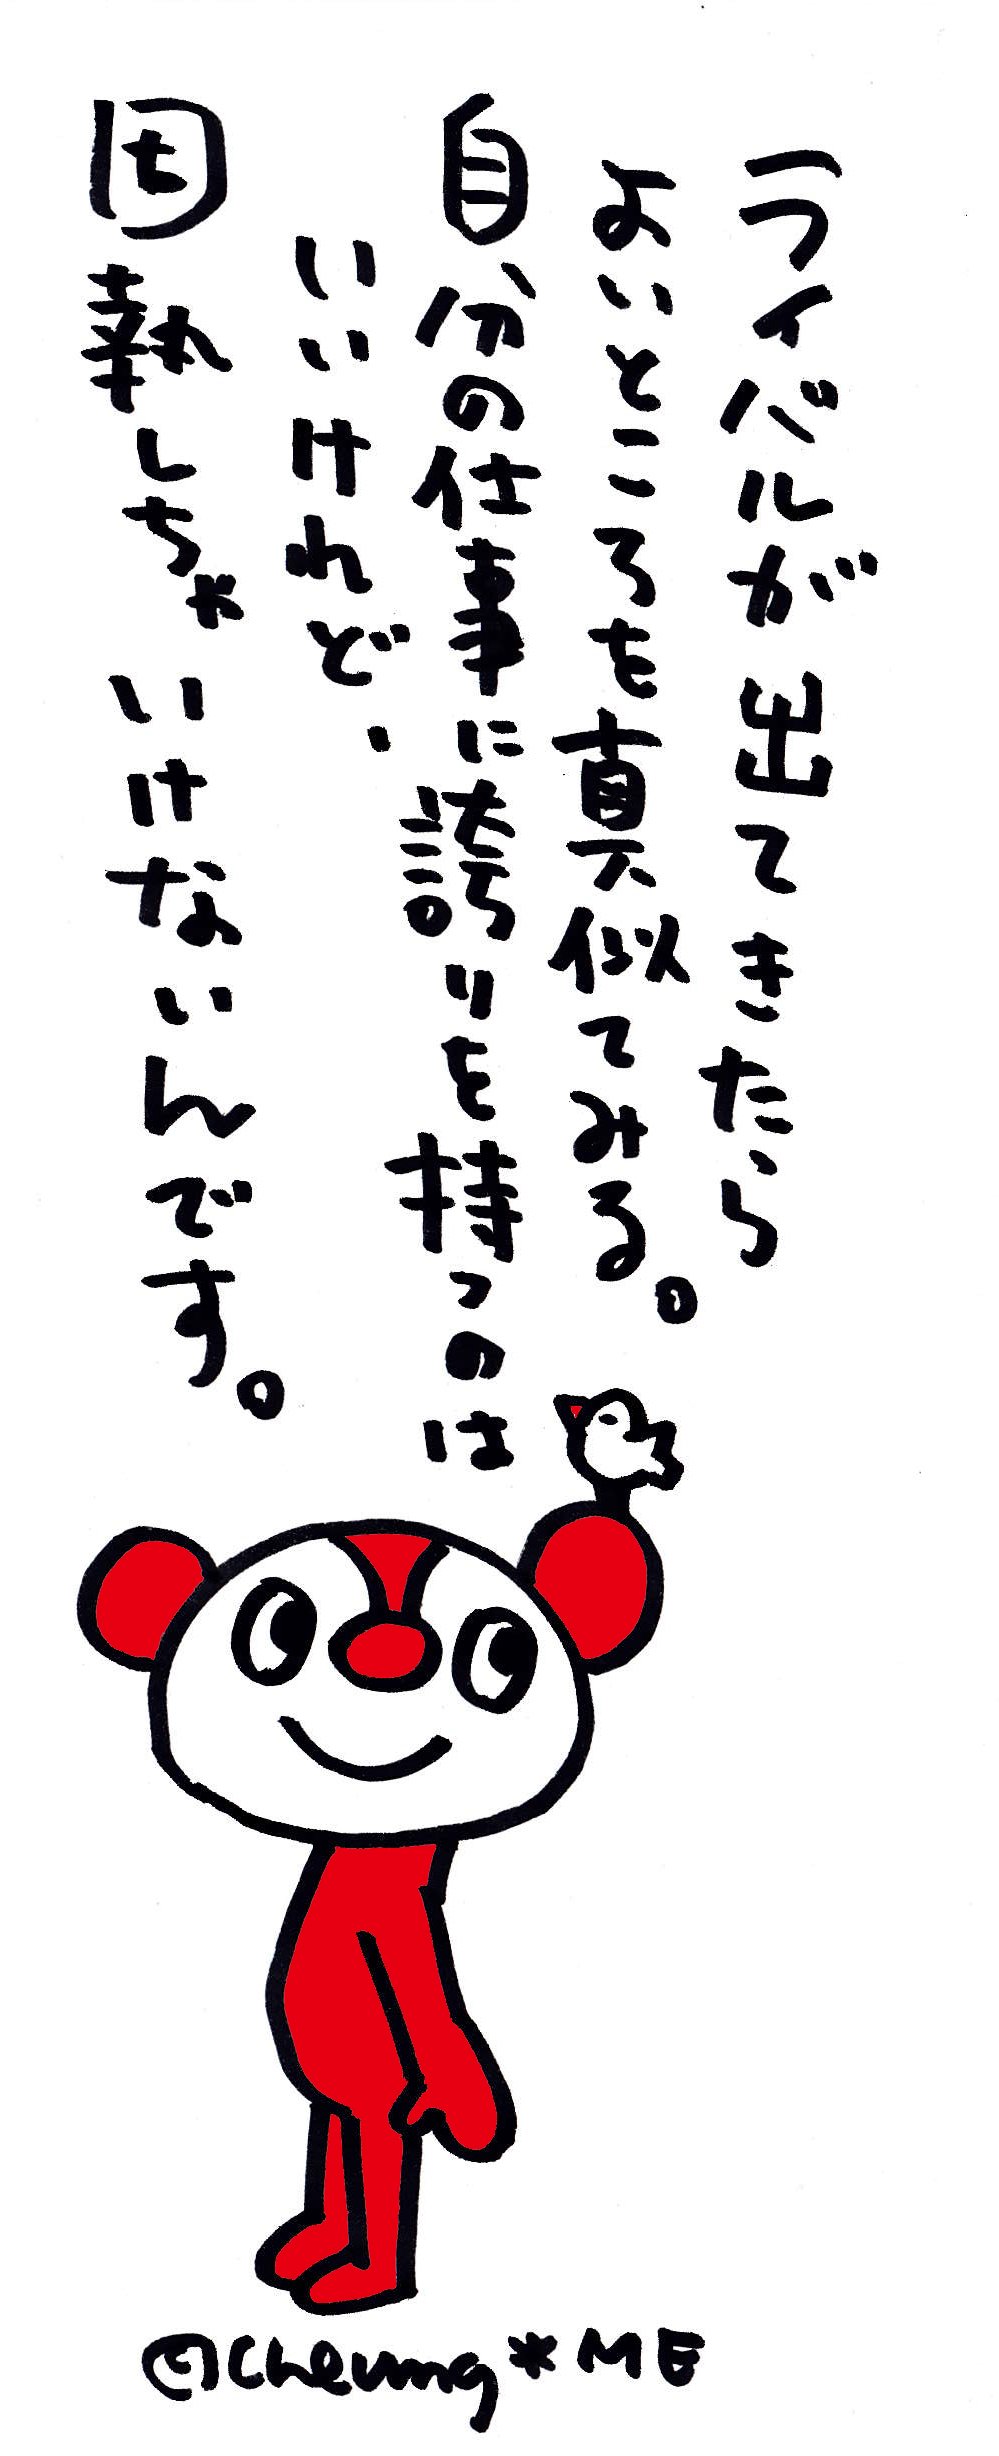 ライバルが出てきたら
よいところを真似てみる。
自分の仕事に誇りを持つのは
いいけれど、
固執しちゃいけないんです。
©Cheung*ME